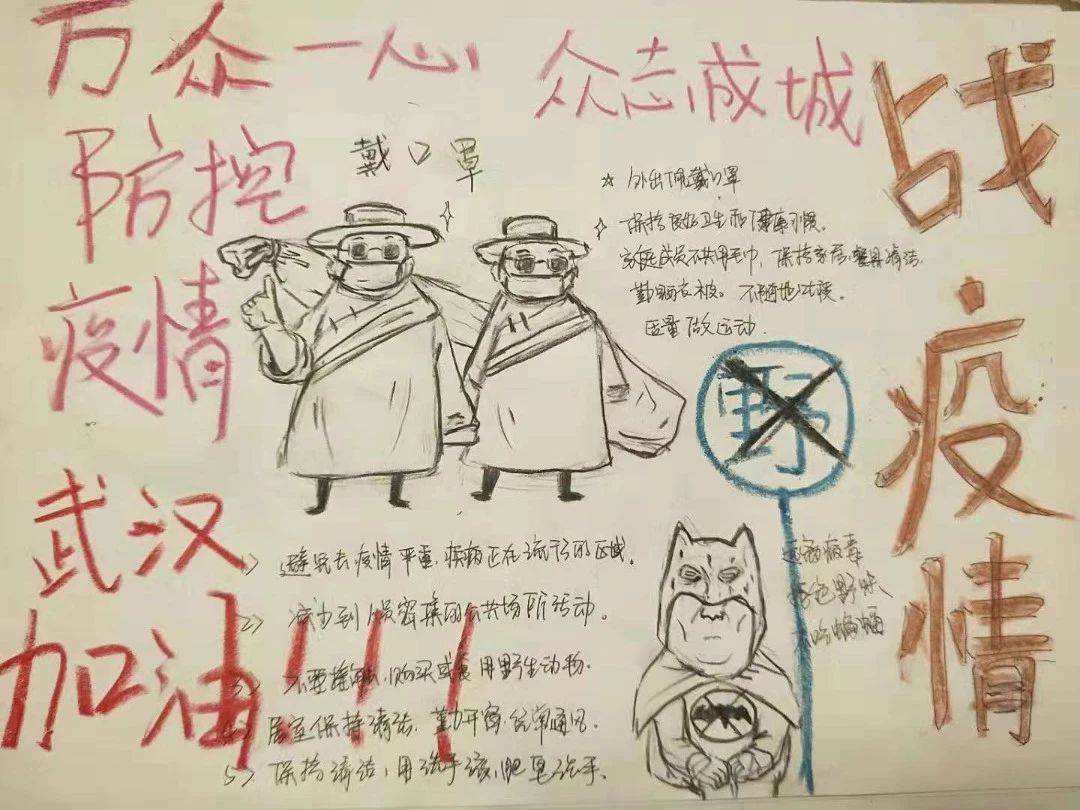 万众一心
众志成城
防控
疫情
战
疫
情
武汉
加油!!!
戴口罩
☆ 外出佩戴口罩
☆ 保持良好卫生和健康习惯。
家庭成员不共用毛巾，保持家居、餐具清洁，
勤晒衣被。不随地吐痰。
适量做运动.
野
远离病毒
拒绝野味
不吃蝙蝠
1> 避免去疫情严重,疾病正在流行的区域.
2> 减少到人员密集的公共场所活动.
3> 不要接触、购买或食用野生动物.
4> 居室保持清洁,勤开窗.经常通风.
5> 保持清洁,用洗手液,肥皂洗手.